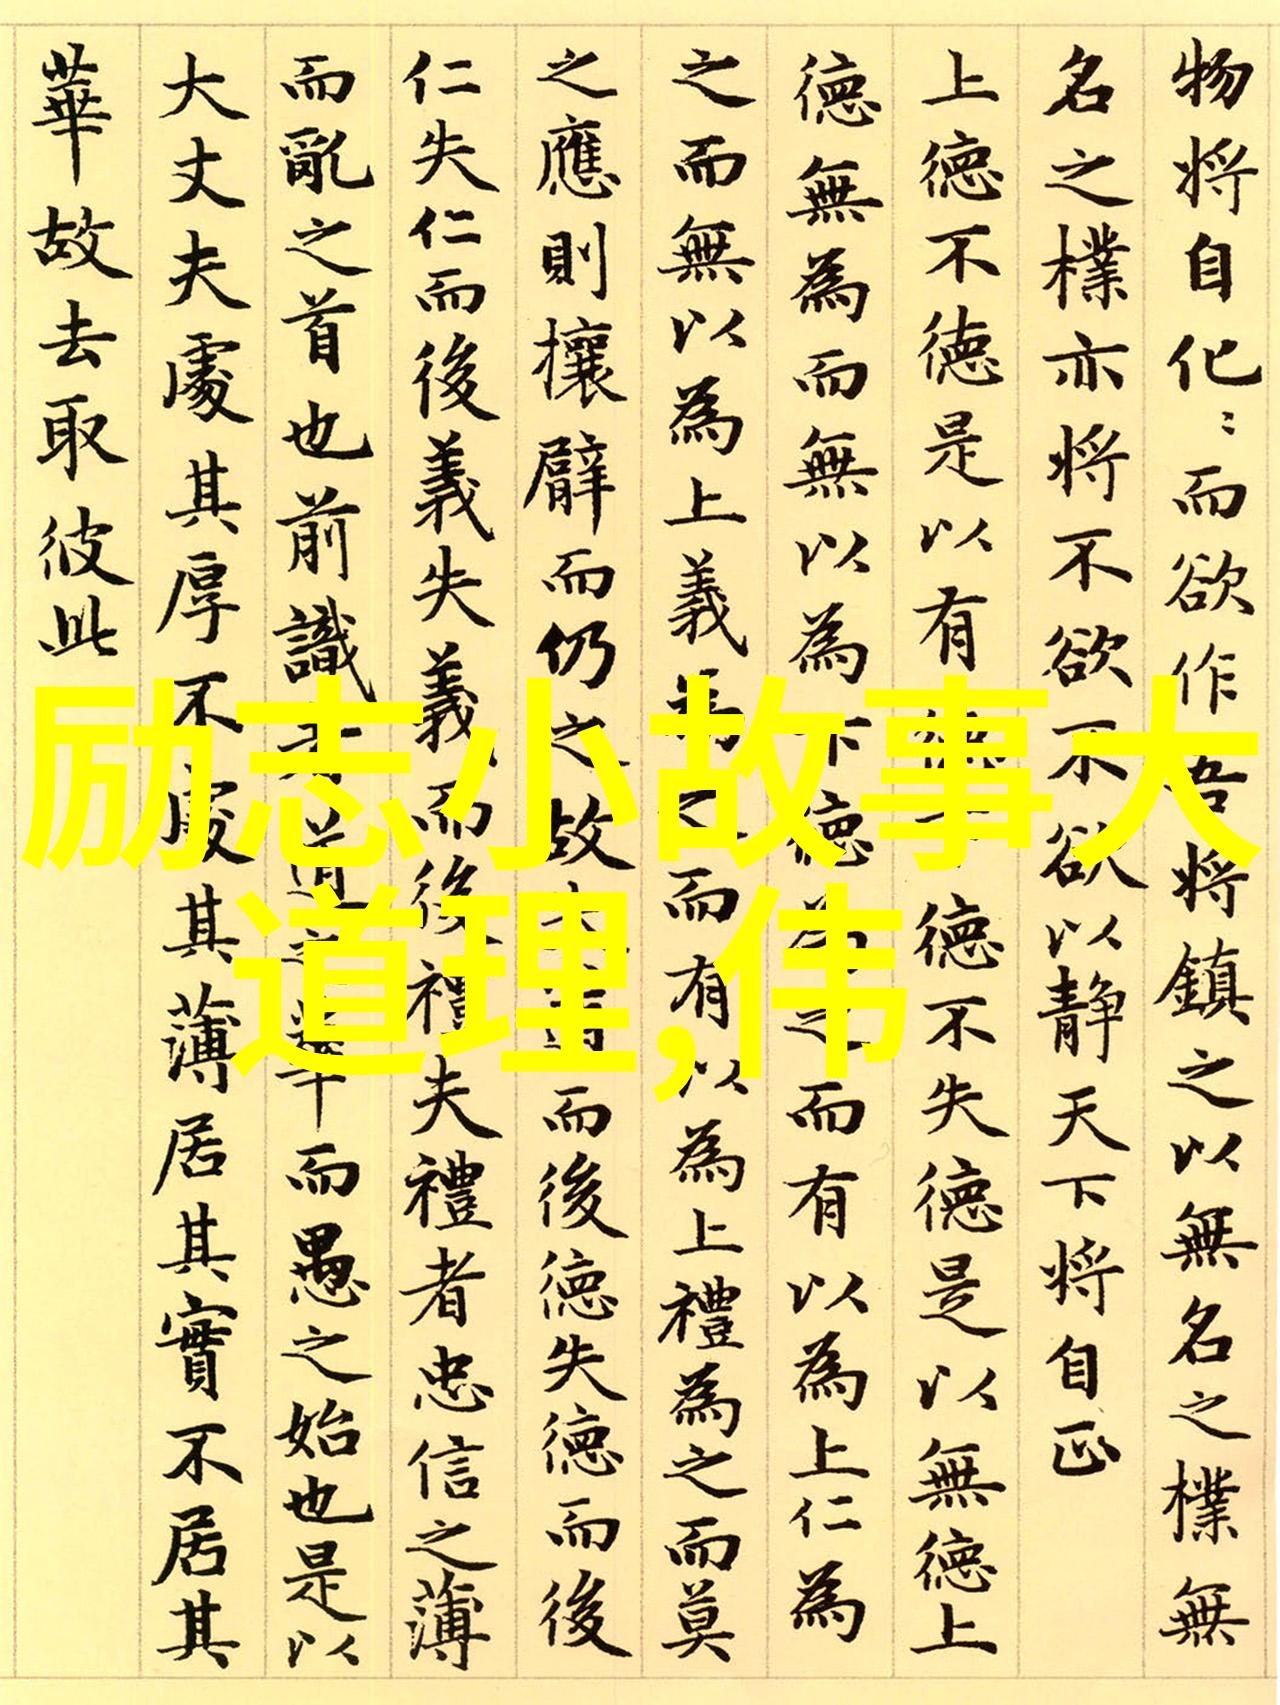 物将自化〻而欲作吾将鎮之以無名之樸無
名之樸亦将不欲不欲以静天下将自正
上德不德是以有德下德不失德是以無德上
德無為而無以為下德為之而有以為上仁為
之而無以為上義為之而有以為上禮為之而莫
之應則攘臂而仍之故失道而後德失德而後
仁失仁而後義失義而後禮夫禮者忠信之薄
而亂之首也前識者道之華而愚之始也是以
大丈夫處其厚不處其薄居其實不居其
華故去取彼此
励志小故事大
道理,伟